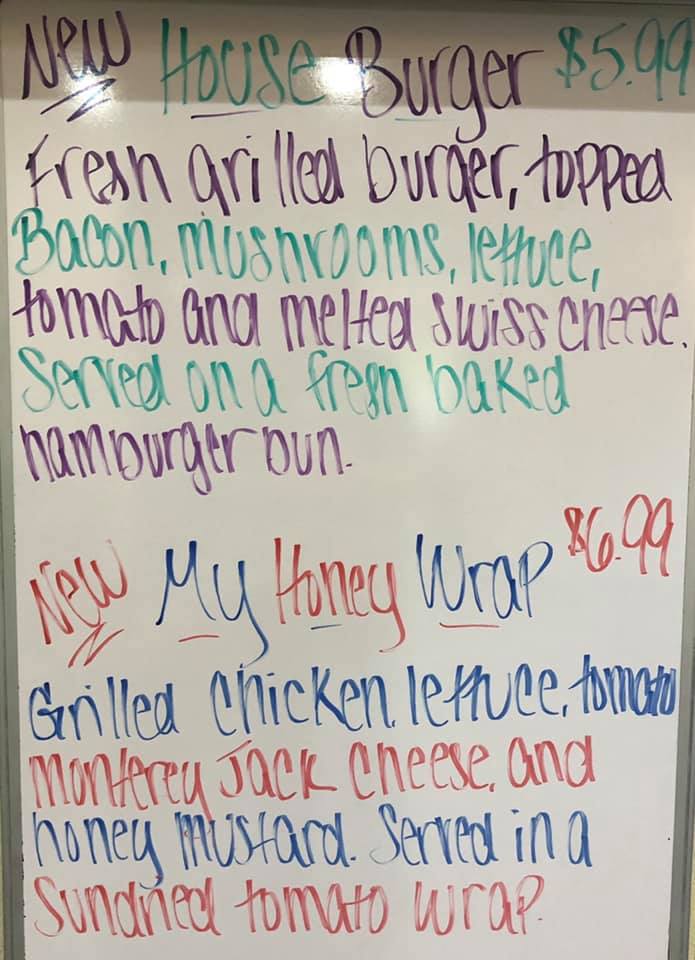 New House Burger $5.99
Fresh grilled burger, topped
Bacon, mushrooms, lettuce,
tomato and melted swiss cheese.
Served on a fresh baked
hamburger bun.
New My Honey Wrap $6.99
Grilled chicken, lettuce, tomato
Monterey Jack cheese, and
honey mustard. Served in a
Sundried tomato wrap.